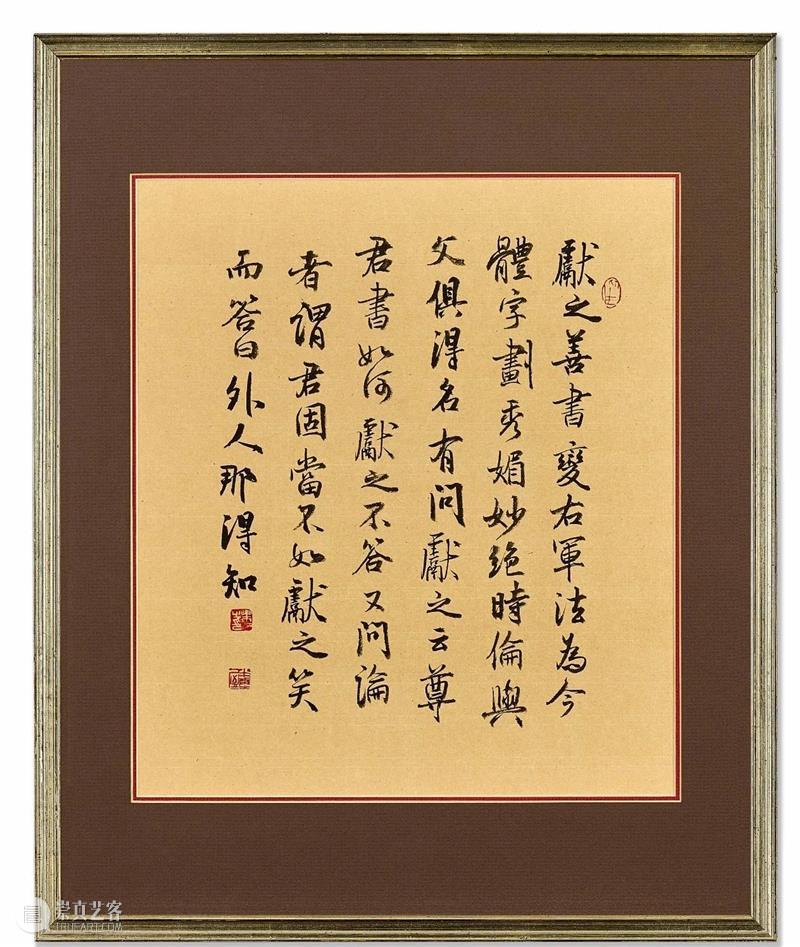 獻之善書變右軍法為今
體字劃秀媚妙絕時倫與
父俱得名有問獻之云尊
君書如何獻之不答又問論
者謂君固當不如獻之笑
而答曰外人那得知
崇真艺客
TRUEART.COM